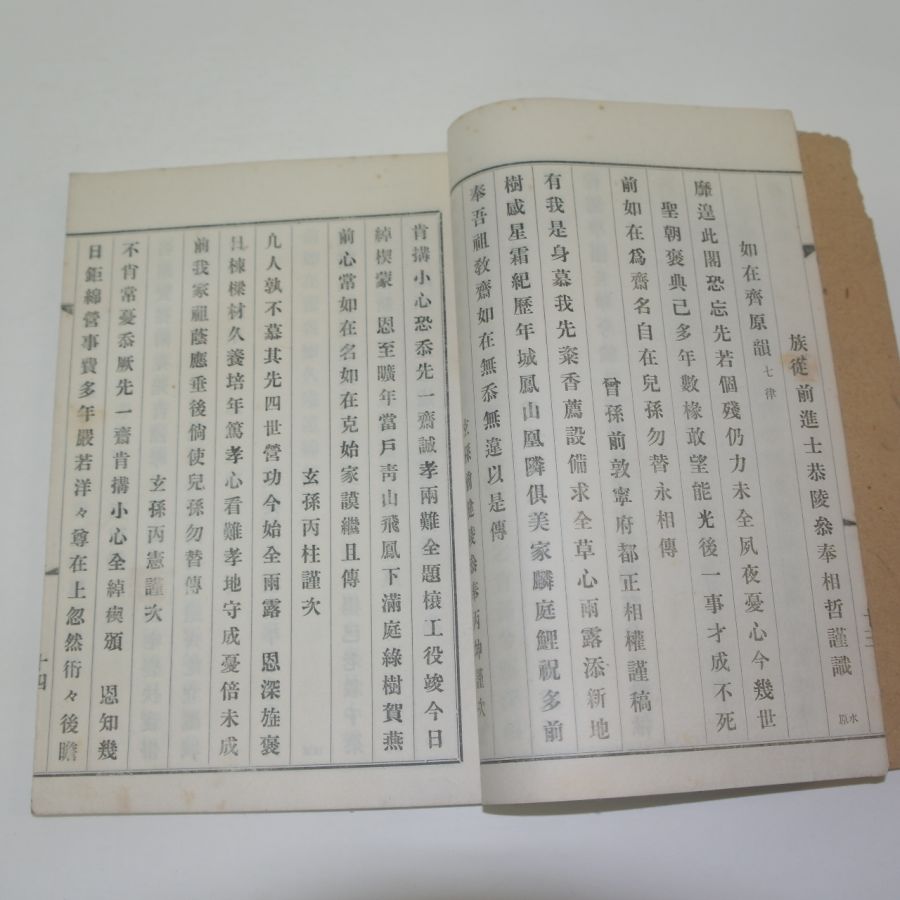 族從前進士恭陵參奉相哲謹識 水原
如在齊原韻 七律
靡遑此閣恐忘先若個殘仍力未全夙夜憂心今幾世
聖朝褒典已多年數椽敢望能光後一事才成不死
前如在爲齋名自在兒孫勿替永相傳
曾孫前敦寧府都正相權謹稿
有我是身慕我先粢香薦設備求全草心雨露添新地
樹感星霜紀歷年城鳳山凰隣俱美家麟庭鯉祝多前
奉吾祖敎齋如在無忝無違以是傳
參奉丙坤謹次
肯搆小心恐忝先一齋誠孝兩難全題榱工役竣今日
綽楔蒙 恩至曠年當戶靑山飛鳳下滿庭綠樹賀燕
前心常如在名如在克始家謨繼且傳
玄孫丙柱謹次
凡人孰不慕其先四世營功今始全雨露 恩深旌褒
具棟樑材久養培年篤孝心看難孝地守成憂倍未成
前我家祖蔭應垂後倘使兒孫勿替傳
玄孫丙憲謹次
不肯常憂忝厥先一齋肯搆小心全綽楔頒 恩知幾
日鉅綿營事費多年嚴若洋々尊在上忽然衎々後瞻
十四